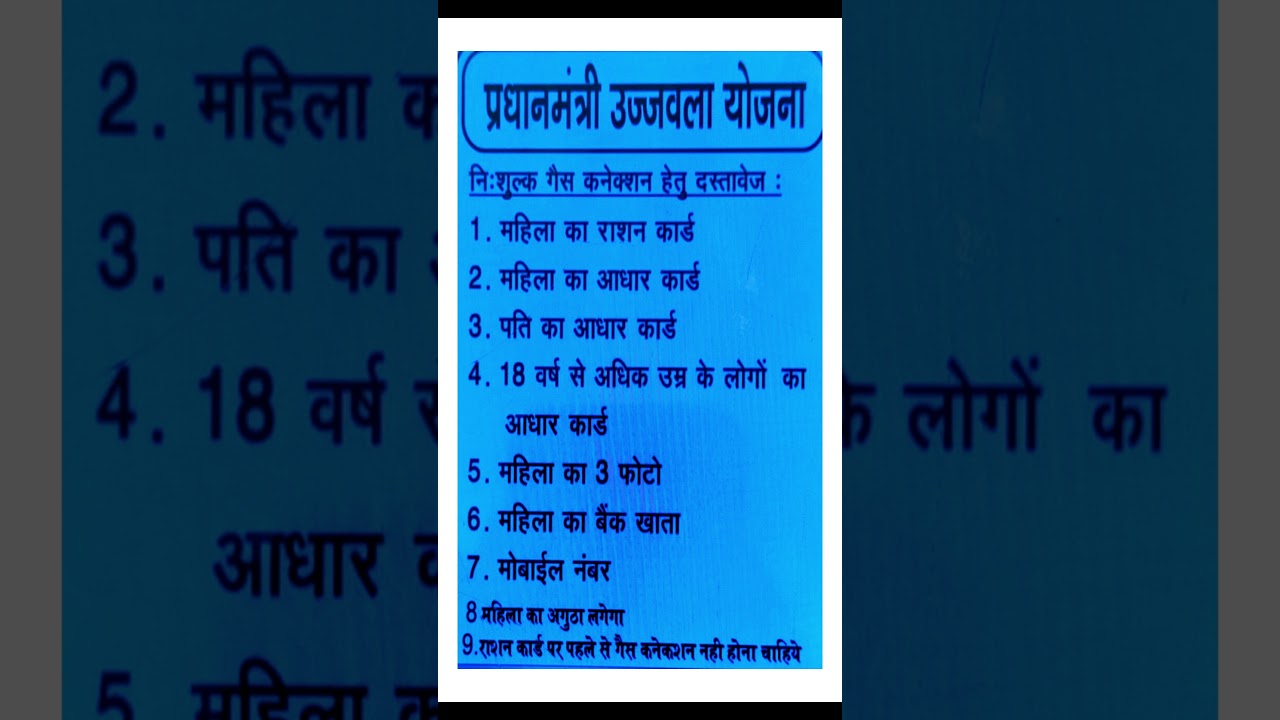 प्रधानमंत्री उज्जवला योजना
निःशुल्क गैस कनेक्शन हेतु दस्तावेज :
1. महिला का राशन कार्ड
2. महिला का आधार कार्ड
3. पति का आधार कार्ड
4. 18 वर्ष से अधिक उम्र के लोगों का
आधार कार्ड
5. महिला का 3 फोटो
6. महिला का बैंक खाता
7. मोबाईल नंबर
8 महिला का अगुठा लगेगा
9.राशन कार्ड पर पहले से गैस कनेकशन नही होना चाहिये